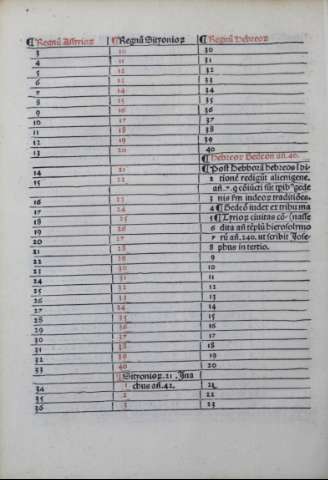 ¶ Regnū Assirioꝝ ¶ Regnū Sitionioꝝ ¶ Regnū Hebreoꝝ
3 10 30
4 11 31
5 12 32
6 13 33
7 14 34
8 15 35
9 16 36
10 17 37
11 18 38
12 19 39
13 20 40
¶ Hebreoꝝ Gedeon an. 40.
14 21 1 ¶ Post Debborā hebreos ī di-
15 22 2 tionē redigūt alienigene.
an. 7. q̄ cōiūcti sūt tp̄ib⁹ gede
16 23 3 nis fm iudeoꝝ traditiōes.
17 24 4 ¶ Gedeō iudex ex tribu ma
18 25 5 ¶ Tyrioꝝ ciuitas cō- (nasse
19 26 6 dita an̄ tēplū hierosolymo
20 27 7 rū an̄. 240. ut scribit Iose-
21 28 8 phus in tertio.
22 29 9
23 30 10
24 31 11
25 32 12
26 33 13
27 34 14
28 35 15
29 36 16
30 37 17
31 38 18
32 39 19
33 40 20
¶ Sitionioꝝ. 21. Ina
34 1 chus an̄. 42. 21
35 2 22
36 3 23